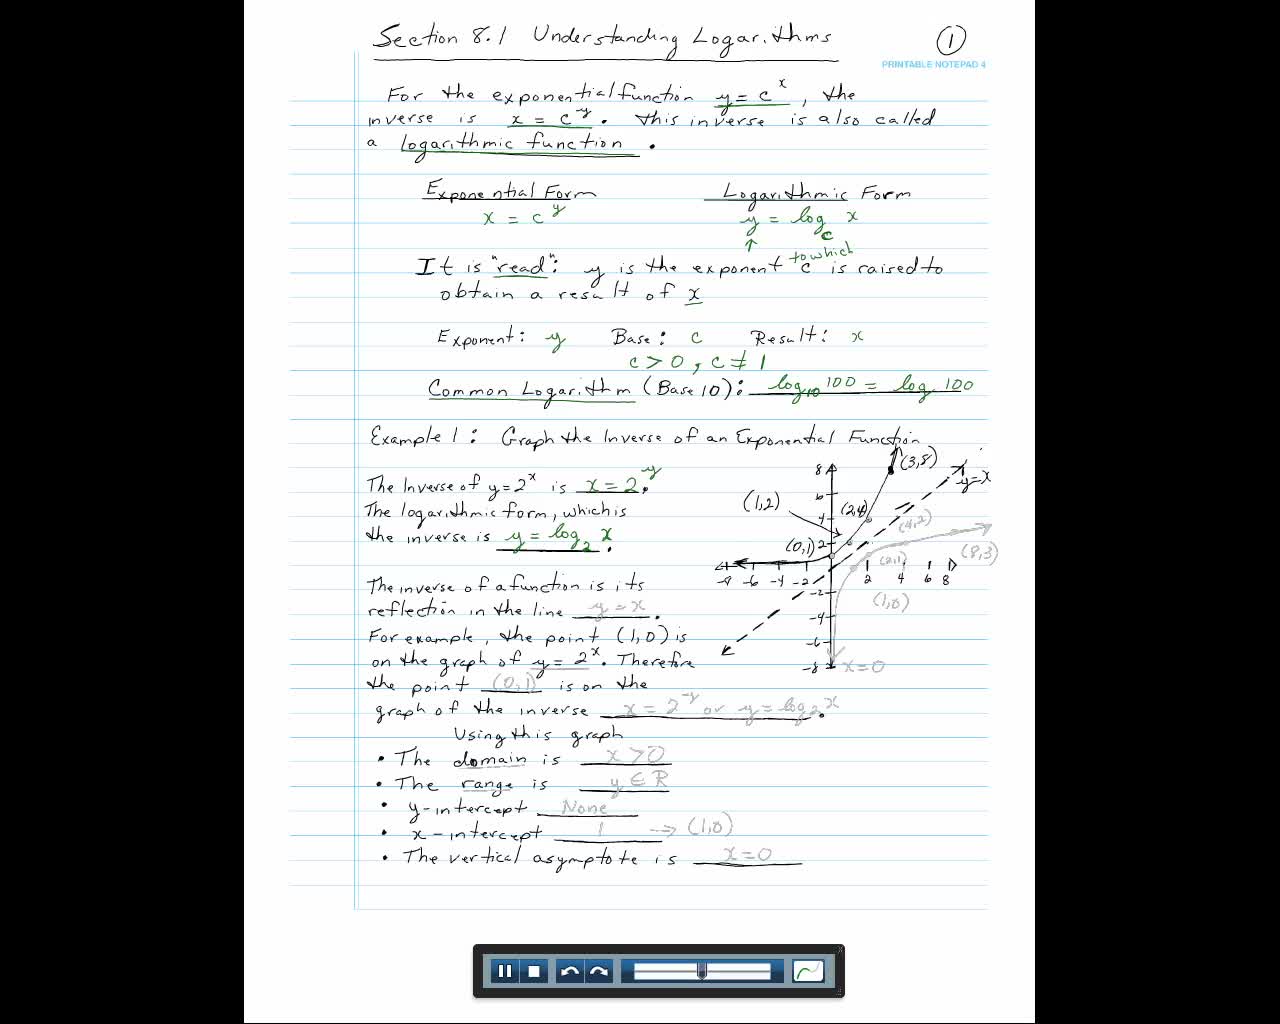 Section 8.1 Understanding Logarithms
1
PRINTABLE NOTEPAD 4
For the exponential function y = c^x, the
inverse is x = c^y. This inverse is also called
a logarithmic function.
Exponential Form
Logarithmic Form
x = c^y
y = log_c x
↑
It is "read": y is the exponent to which c is raised to
obtain a result of x
Exponent: y Base: c Result: x
c > 0, c ≠ 1
Common Logarithm (Base 10): log_10 100 = log 100
Example 1: Graph the Inverse of an Exponential Function
The Inverse of y = 2^x is x = 2^y.
The logarithmic form, which is
the inverse is y = log_2 x.
The inverse of a function is its
reflection in the line y = x.
For example, the point (1,0) is
on the graph of y = 2^x. Therefore
the point (0,1) is on the
graph of the inverse x = 2^y or y = log_2 x.
Using this graph
• The domain is x > 0
• The range is y ∈ R
• y-intercept None
• x-intercept 1 → (1,0)
• The vertical asymptote is x = 0
8
(3,8)
y = x
6
(1,2)
4
(2,4)
(4,2)
2
(0,1)
(2,1)
(8,3)
-8 -6 -4 -2
2 4 6 8
-2
(1,0)
-4
-6
-8
x = 0